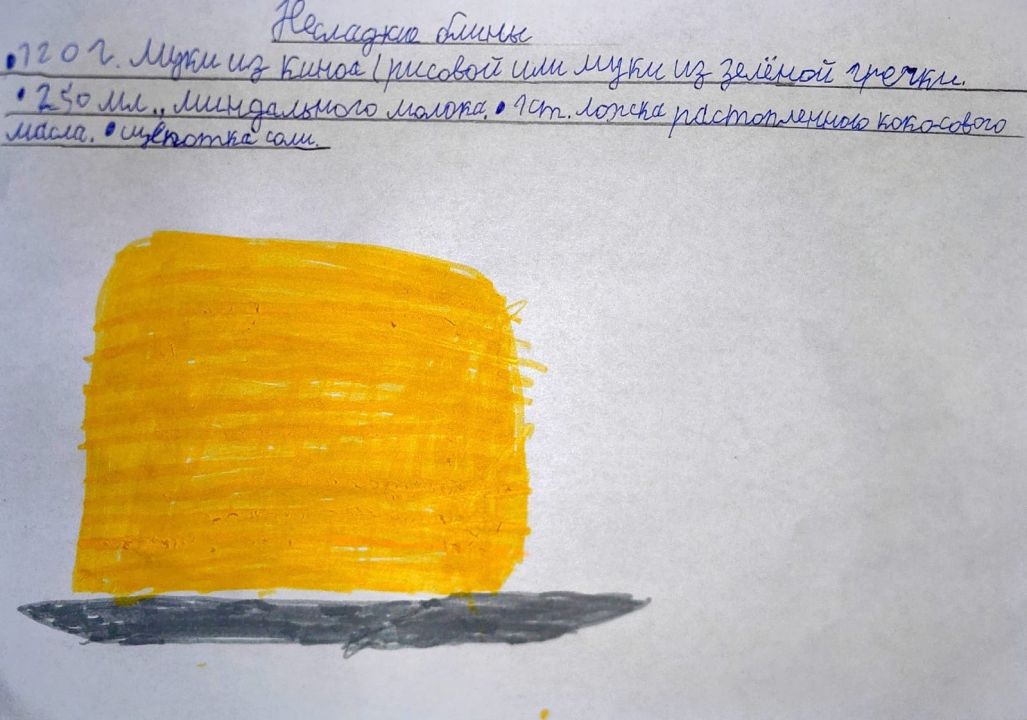 Несладкие блины
•120 г. муки из киноа (рисовой или муки из зелёной гречки.
•250 мл., миндального молока. • 1 ст. ложка растопленного кокосового
масла. • щепотка соли.